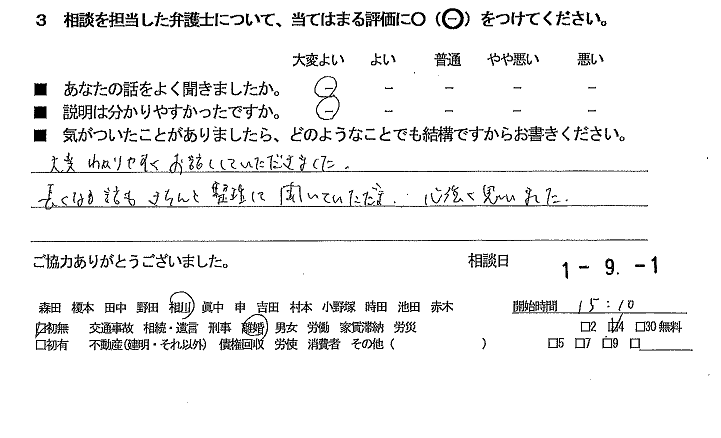 3 相談を担当した弁護士について、当てはまる評価に○（⊖）をつけてください。
大変よい よい 普通 やや悪い 悪い
■ あなたの話をよく聞きましたか。 － － － － －
■ 説明は分かりやすかったですか。 － － － － －
■ 気がついたことがありましたら、どのようなことでも結構ですからお書きください。
大変わかりやすくお話ししていただきました。
長くなる話もきちんと整理して聞いていただき、心強く思いました。
ご協力ありがとうございました。 相談日 1-9.-1
森田 榎本 田中 野田 相川 眞中 申 吉田 村本 小野塚 時田 池田 赤木 開始時間 15:10
□初無 交通事故 相続・遺言 刑事 離婚 男女 労働 家賃滞納 労災 □2 □4 □30 無料
□初有 不動産(建明・それ以外) 債権回収 労使 消費者 その他 ( ) □5 □7 □9 □